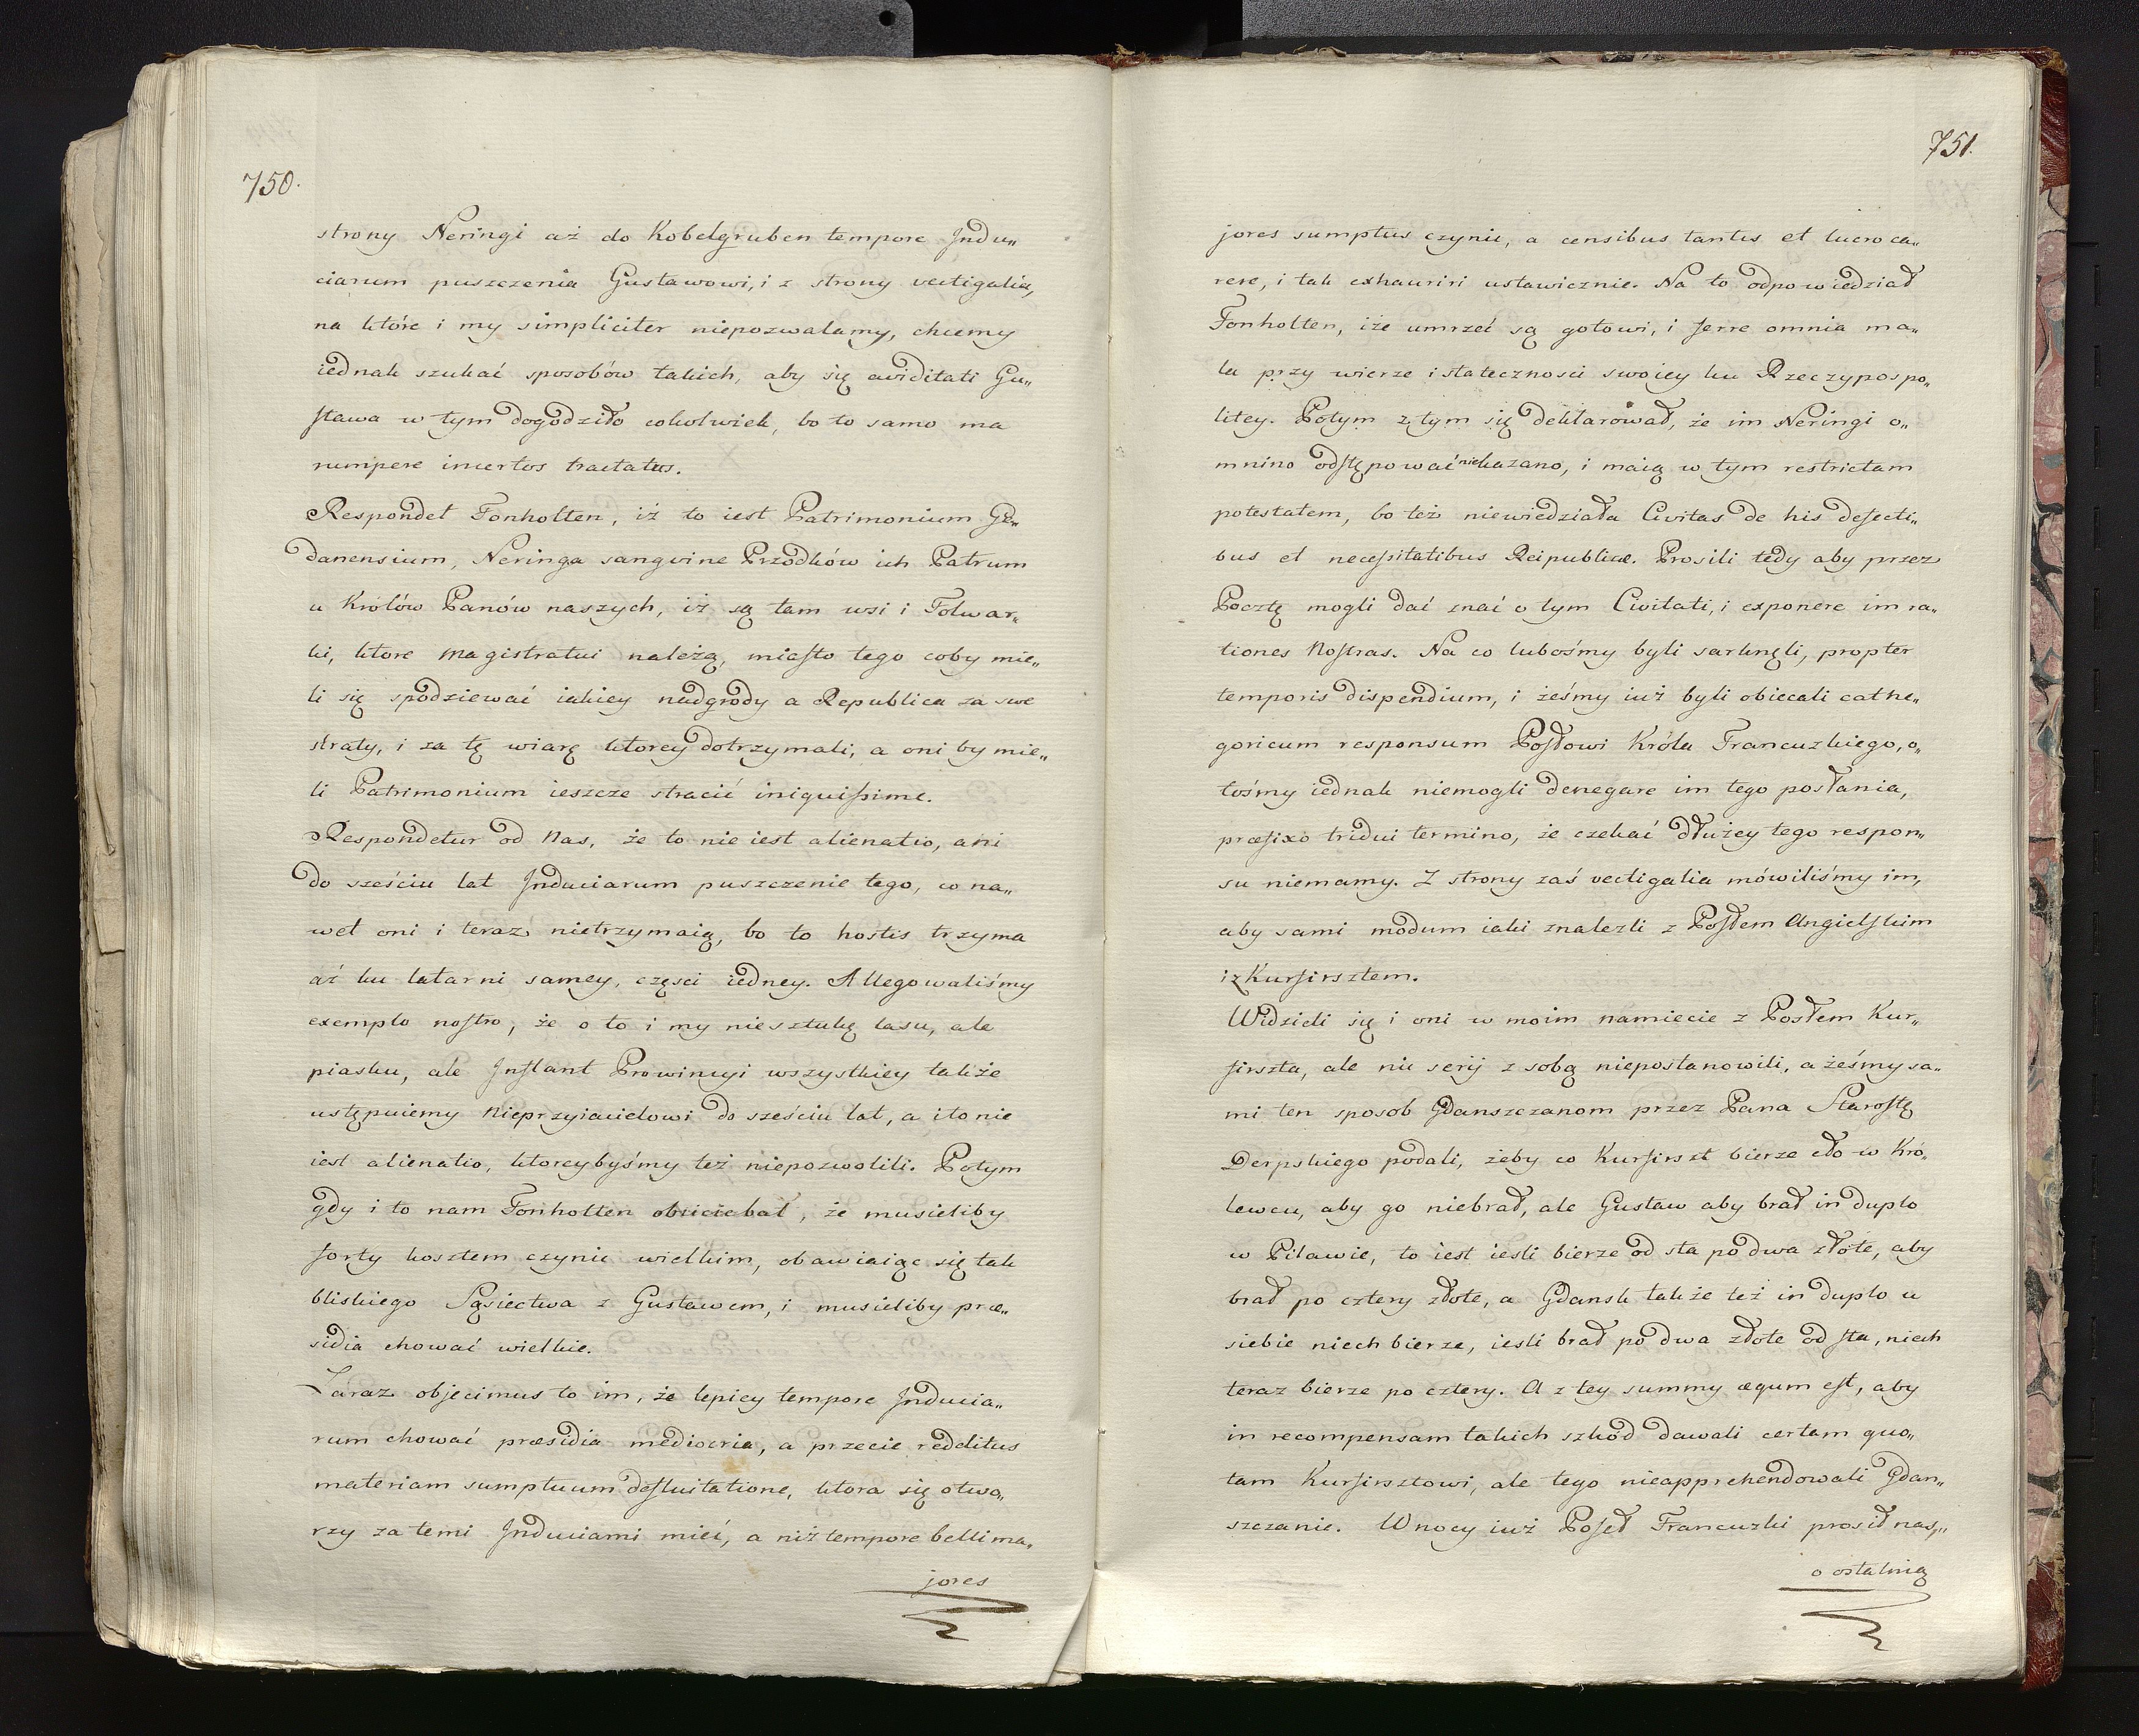 750.
strony Neringi aż do Kobelgruben tempore Indu„
ciarum puszczenia Gustawowi, i z strony vectigalia,
na które i my simpliciter niepozwalamy, chcemy
iednak szukać sposobów takich, aby się aviditati Gu„
stawa w tym dogodziło cokolwiek, bo to samo ma
rumpere incertos tractatus.
Respondet Fonholten, iż to iest Patrimonium Ge„
danensium, Neringa sangvine Przodków ich Patrum
u Królów Panów naszych, iż są tam wsi i Folwar„
ki, ktore Magistratui należą, miasto tego coby mie„
li się spodziewać iakiey nadgrody a Republica za swe
straty, i za tę wiarę ktorey dotrzymali, a oni by mie„
li Patrimonium ieszcze stracić iniquissime.
Respondetur od Nas, że to nie iest alienatio, ani
do sześciu lat Induciarum puszczenie tego, co na„
wet oni i teraz nietrzymaią, bo to hostis trzyma
aż ku latarni samey, częsci iedney. Allegowaliśmy
exemplo nostro, że o to i my nie sztukę lasu, ale
piasku, ale Inflant Prowincyi wszystkiey także
ustępuiemy Nieprzyiacielowi do sześciu lat, a i to nie
iest alienatio, ktoreybyśmy też niepozwolili. Potym
gdy i to nam Fonholten obiiciebat, że musieliby
forty kosztem czynić wielkim, obawiaiąc się tak
bliskiego Sąsiectwa z Gustawem, i musieliby præ„
sidia chować wielkie.
Zaraz objecimus to im, że lepiey tempore Inducia„
rum chować præsidia mediocria, a przecie redditus
materiam sumptuum defluitatione, ktora się otwo„
rzy za temi Induciami mieć, a niż tempore belli ma„
jores
751.
jores sumptus czynić, a censibus tantis et lucro ca„
rere, i tak exhauriri ustawicznie. Na to odpowiedział
Fonholten, iże umrzeć są gotowi, i ferre omnia ma„
la przy wierze i stateczności swoiey ku Rzeczypospo„
litey. Potym z tym się deklarował, że im Neringi o„
mnino odstępować niekazano, i maią w tym restrictam
potestatem, bo też niewiedziała Civitas de his defecti„
bus et necessitatibus Reipublicæ. Prosili tedy aby przez
Pocztę mogli dać znać o tym Civitati, i exponere im ra„
tiones Nostras. Na co lubośmy byli sarknęli, propter
temporis dispendium, i żeśmy iuż byli obiecali cathe„
goricum responsum Posłowi Króla Francuzkiego, o„
tośmy iednak niemogli denegare im tego posłania,
præfixo tridui termino, że czekać dłużey tego respon„
su niemamy. Z strony zaś vectigalia mówiliśmy im,
aby sami modum iaki znalezli z Posłem Angielskim
i z Kurfirsztem.
Widzieli się i oni w moim namiecie z Posłem Kur„
firszta, ale nic serij z sobą niepostanowili, a żeśmy sa„
mi ten sposob Gdanszczanom przez Pana Starostę
Derpskiego podali, żeby co Kurfirszt bierze cło w Kró„
lewcu, aby go niebrał, ale Gustaw aby brał in duplo
w Pilawie, to iest iesli bierze od sta po dwa złote, aby
brał po cztery złote, a Gdansk także też in duplo u
siebie niech bierze, iesli brał po dwa złote od sta, niech
teraz bierze po cztery. A z tey summy æqum est, aby
in recompensam takich szkód dawali certam quo„
tam Kurfirsztowi, ale tego nieapprehendowali Gdan„
szczanie. W nocy iuż Poseł Francuzki prosił nas„
o ostatnią